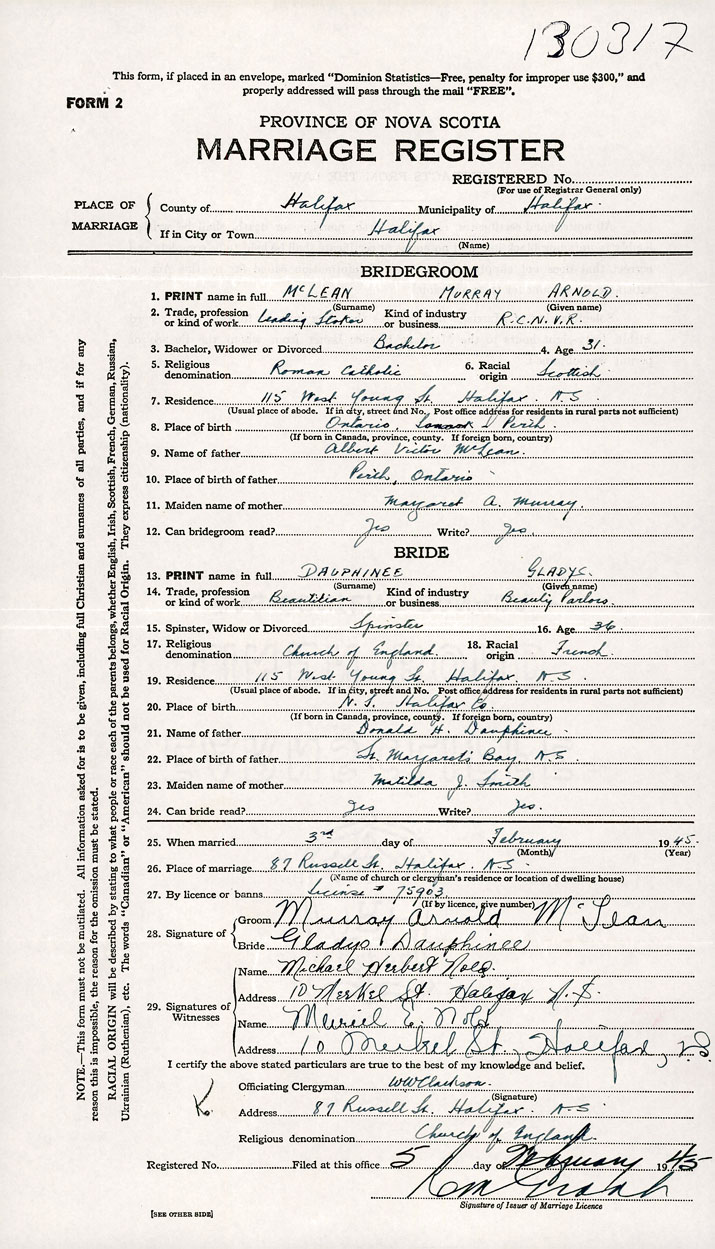 130317
This form, if placed in an envelope, marked "Dominion Statistics—Free, penalty for improper use $300," and
properly addressed will pass through the mail "FREE".
FORM 2
PROVINCE OF NOVA SCOTIA
MARRIAGE REGISTER
REGISTERED No.
(For use of Registrar General only)
PLACE OF MARRIAGE
County of Halifax Municipality of Halifax
If in City or Town Halifax
(Name)
BRIDEGROOM
1. PRINT name in full McLEAN MURRAY ARNOLD.
(Surname) (Given name)
2. Trade, profession or kind of work Leading Stoker Kind of industry or business R.C.N.V.R.
3. Bachelor, Widower or Divorced Bachelor 4. Age 31.
5. Religious denomination Roman Catholic 6. Racial origin Scottish
7. Residence 115 West Young St. Halifax. N.S
(Usual place of abode. If in city, street and No. Post office address for residents in rural parts not sufficient)
8. Place of birth Ontario, Perth.
(If born in Canada, province, county. If foreign born, country)
9. Name of father Albert Victor McLean.
10. Place of birth of father Perth, Ontario
11. Maiden name of mother Margaret A. Murray.
12. Can bridegroom read? Yes Write? Yes.
BRIDE
13. PRINT name in full DAUPHINEE GLADYS.
(Surname) (Given name)
14. Trade, profession or kind of work Beautician Kind of industry or business Beauty Parlors.
15. Spinster, Widow or Divorced Spinster 16. Age 36.
17. Religious denomination Church of England. 18. Racial origin French.
19. Residence 115 West Young St. Halifax N.S
(Usual place of abode. If in city, street and No. Post office address for residents in rural parts not sufficient)
20. Place of birth N.S. Halifax Co.
(If born in Canada, province, county. If foreign born, country)
21. Name of father Donald H. Dauphinee
22. Place of birth of father St. Margaret's Bay, N.S
23. Maiden name of mother Matilda J. Smith
24. Can bride read? Yes Write? Yes.
25. When married 3rd day of February 1945.
(Month) (Year)
26. Place of marriage 87 Russell St. Halifax. N.S
(Name of church or clergyman's residence or location of dwelling house)
27. By licence or banns License # 75903
(If by licence, give number)
28. Signature of
Groom Murray Arnold McLean
Bride Gladys Dauphinee
29. Signatures of Witnesses
Name Michael Herbert
Address 10 Merkel St. Halifax N.S.
Name Muriel E.
Address 10 Merkel St., Halifax, N.S.
I certify the above stated particulars are true to the best of my knowledge and belief.
Officiating Clergyman WW Clarkson.
(Signature)
Address 87 Russell St. Halifax. N.S
Religious denomination Church of England.
Registered No. Filed at this office 5 day of February 1945
Signature of Issuer of Marriage Licence
[SEE OTHER SIDE]
NOTE.—This form must not be mutilated. All information asked for is to be given, including full Christian and surnames of all parties, and if for any
reason this is impossible, the reason for the omission must be stated.
RACIAL ORIGIN will be described by stating to what people or race each of the parents belongs, whether English, Irish, Scottish, French, German, Russian,
Ukrainian (Ruthenian), etc. The words "Canadian" or "American" should not be used for Racial Origin. They express citizenship (nationality).